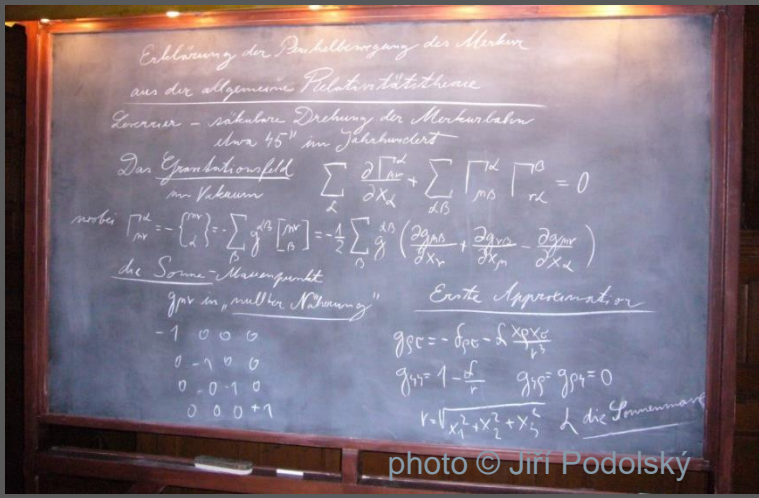 Erklärung der Perihelbewegung des Merkur
aus der allgemeine Relativitätstheorie
Leverrier – säkulare Drehung der Merkurbahn
etwa 45" im Jahrhundert
Das Gravitationsfeld
im Vakuum
∑_α ∂Γ^α_μν/∂x_α + ∑_αβ Γ^α_μβ Γ^β_να = 0
wobei Γ^α_μν = -{μν α} = -∑_β g^αβ [μν β] = -1/2 ∑_β g^αβ (∂g_μβ/∂x_ν + ∂g_νβ/∂x_μ - ∂g_μν/∂x_α)
die Sonne – Massenpunkt
g_μν in „nullter Näherung"
-1 0 0 0
0 -1 0 0
0 0 -1 0
0 0 0 +1
Erste Approximation
g_ρσ = -δ_ρσ - α x_ρx_σ/r³
g_44 = 1 - α/r g_4ρ = g_ρ4 = 0
r = √(x_1² + x_2² + x_3²) α die Sonnenmasse
photo © Jiří Podolský